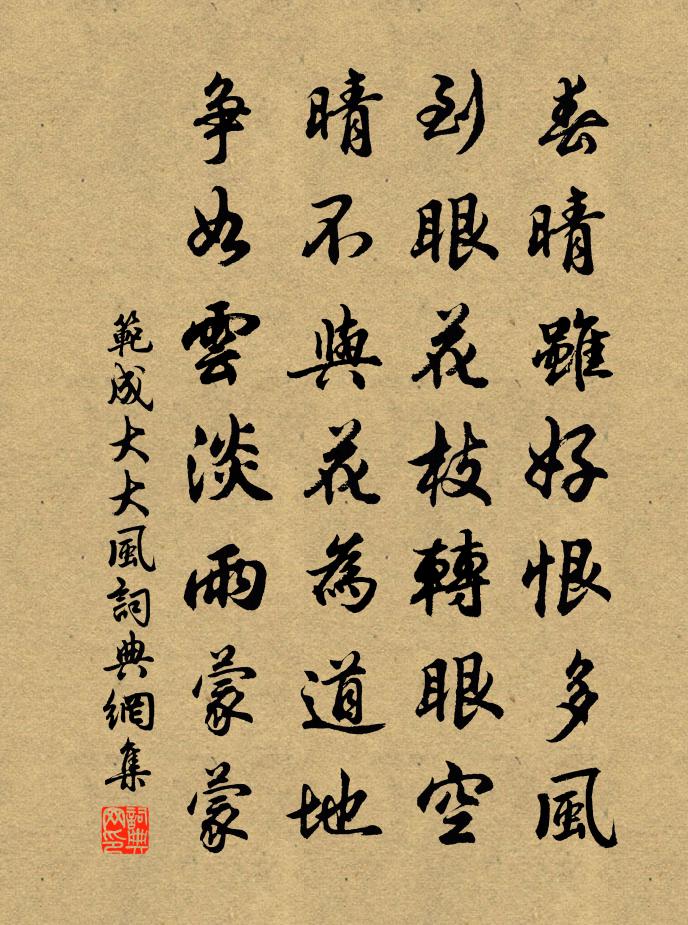 春晴雖好恨多風
到眼花枝轉眼空
晴不與花為道地
争如雲淡雨蒙蒙
範成大大風詞典網集
詞典网印